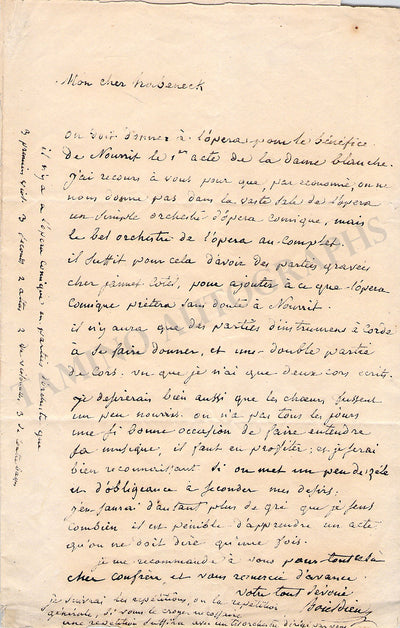 Mon cher habeneck
on doit donner à l'opera, pour le bénéfice
de Nourrit le 1er acte de la dame blanche.
j'ai recours à vous pour que, par economie, on ne
nous donne pas dans la vaste salle de l'opera
un simple orchestre d'opera comique, mais
le bel orchestre de l'opera au complet.
il suffit pour cela d'avoir des parties gravées
chez janet cotel, pour ajouter à ce que l'opera
comique prêtera sans doute à Nourrit
il n'y aura que des parties d'instrumens à corde
à se faire donner, et une double partie
de cors. vu que je n'ai que deux cors ecrits.
je desirerais bien aussi que les chœurs fussent
un peu nourris. on n'a pas tous les jours
une si bonne occasion de faire entendre
sa musique, il faut en profiter; et je serai
bien reconnaissant si on met un peu de zèle
et d'obligeance à seconder mes desirs.
j'en saurai d'autant plus de gré que je sens
combien il est penible d'apprendre un acte
qu'on ne doit dire qu'une fois.
je me recommande à vous pour tout cela
cher confrère, et vous remercie d'avance.
votre tout dévoué
Boieldieu
je suivrai les repetitions, ou la repetition
générale, si vous le croyez necessaire
une repetition suffira avec un orchestre dirigé par vous
il n'y a à l'opera comique en parties d'orchestre que
3 premiers viol. 3 seconds 2 altos 2 de violoncelles, 3 de contre basse
TAMINO AUTOGRAPHS